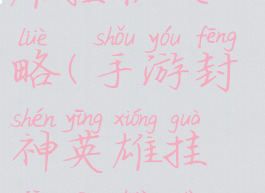 lüè shǒu yóu fēng
略(手游封
shén yīng xióng guà
神英雄挂